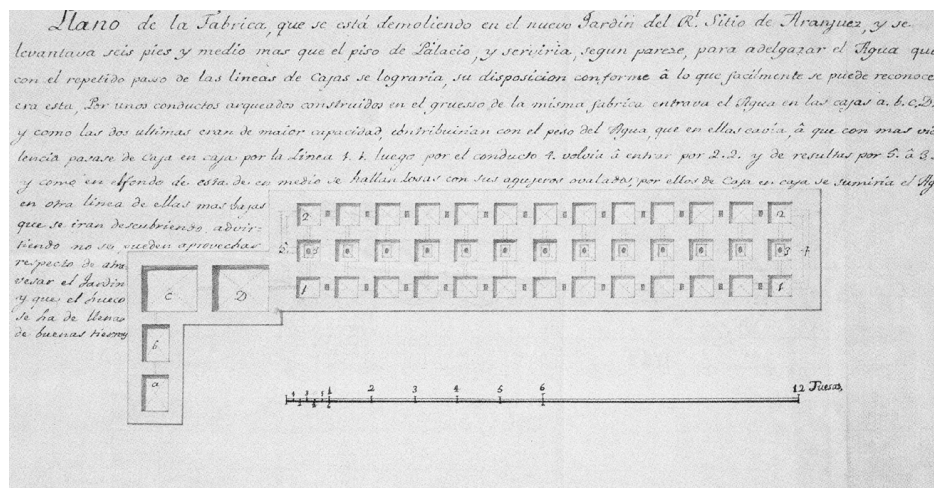 Llano de la Fabrica, que se está demoliendo en el nuevo Jardin del Rl. Sitio de Aranjuez, y se
levantava seis pies y medio mas que el piso de Palacio, y serviria, segun pareze, para adelgazar el Agua que
con el repetido paso de las lineas de Cajas se lograria, su disposicion conforme â lo que facilmente se puede reconoce
era esta, Por unos conductos arqueados construidos en el gruesso de la misma fabrica entrava el Agua en las cajas a. b. c. D.
y como las dos ultimas eran de maior capacidad, contribuirian con el peso del Agua que en ellas cavia, â que con mas vio
lencia pasase de Caja en caja por la Linea 1. 1. luego por el conducto 4. volvia â entrar por 2. 2. y de resultas por 5. â 3.
y como en el fondo de esta de en medio se hallan losas con sus agujeros ovalados, por ellos de Caja en caja se sumiria el Ag
en otra linea de ellas mas bajas
que se iran descubriendo, advir-
tiendo no se pueden aprovechar
respecto de atra
vesar el Jardin
y que el hueco
se ha de llenar
de buenas tierras
2 2
5 3 4
1 1
C D
b
a
1 2 3 4 5 6 12 Tuesas,